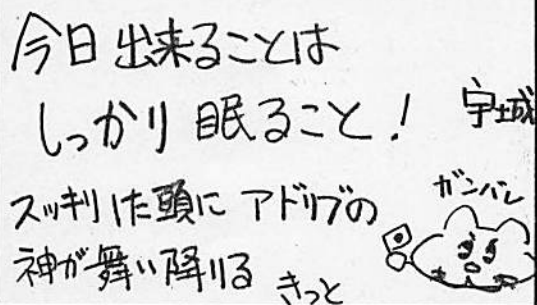 今日出来ることは
しっかり眠ること!
宇城
スッキリした頭にアドリブの
神が舞い降りる
きっと
ガンバレ